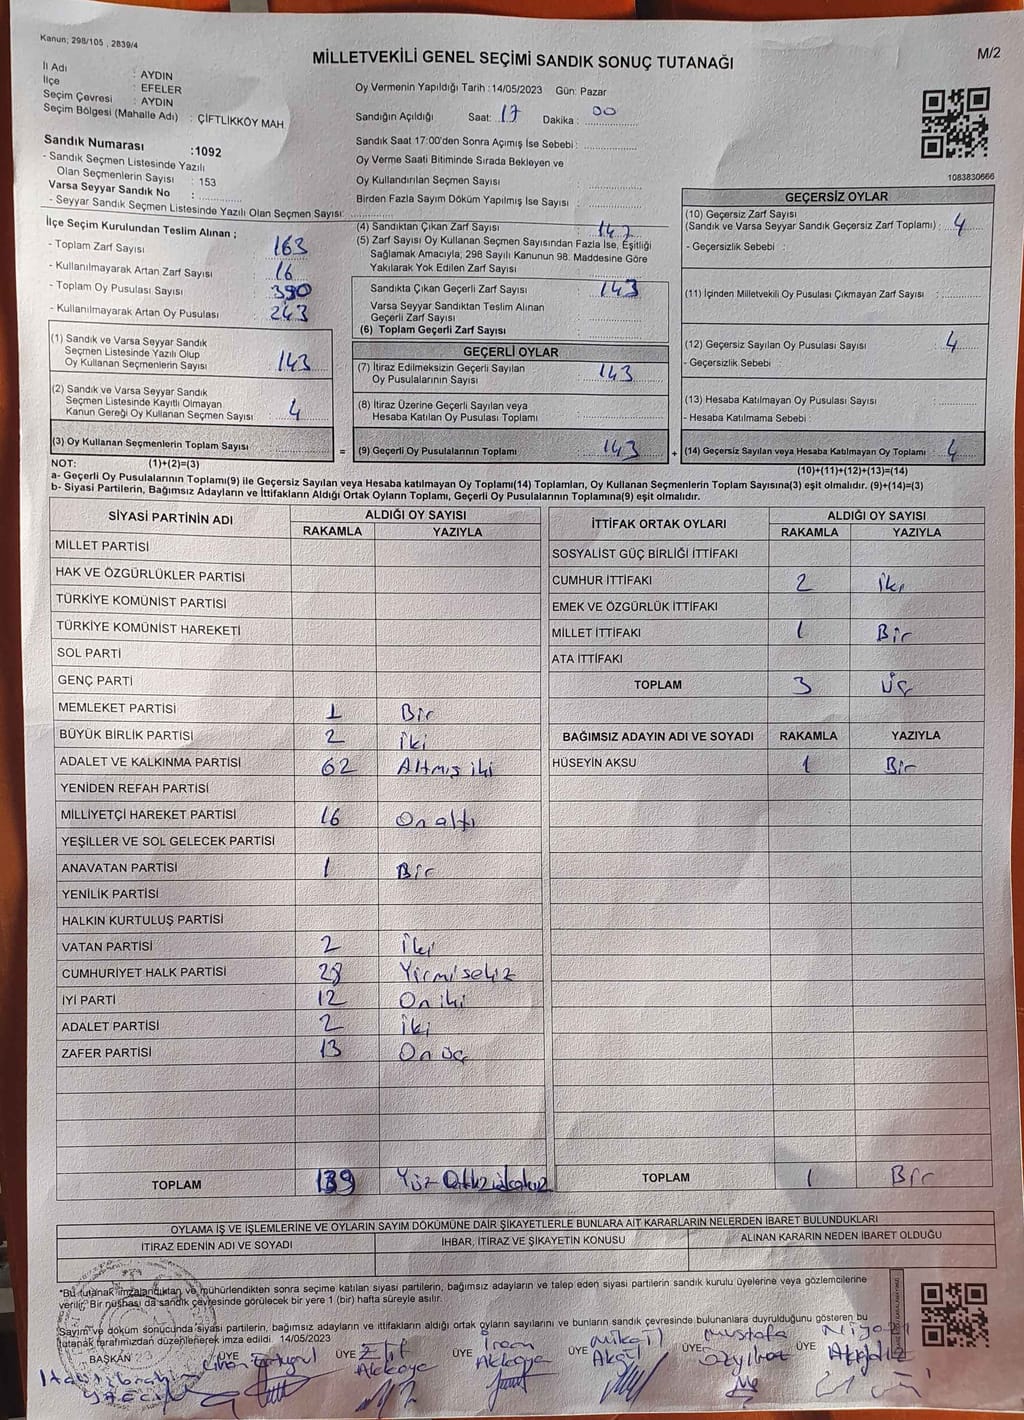 Kanun; 298/105 , 2839/4
MİLLETVEKİLİ GENEL SEÇİMİ SANDIK SONUÇ TUTANAĞI
M/2
İl Adı : AYDIN
İlçe : EFELER
Seçim Çevresi : AYDIN
Seçim Bölgesi (Mahalle Adı) : ÇİFTLİKKÖY MAH
Sandık Numarası :1092
- Sandık Seçmen Listesinde Yazılı
Olan Seçmenlerin Sayısı : 153
Varsa Seyyar Sandık No :
- Seyyar Sandık Seçmen Listesinde Yazılı Olan Seçmen Sayısı:
Oy Vermenin Yapıldığı Tarih :14/05/2023 Gün: Pazar
Sandığın Açıldığı Saat: 17 Dakika : 00
Sandık Saat 17:00'den Sonra Açımış İse Sebebi :
Oy Verme Saati Bitiminde Sırada Bekleyen ve
Oy Kullandırılan Seçmen Sayısı :
Birden Fazla Sayım Döküm Yapılmış İse Sayısı :
1083830666
İlçe Seçim Kurulundan Teslim Alınan ;
- Toplam Zarf Sayısı : 163
- Kullanılmayarak Artan Zarf Sayısı : 16
- Toplam Oy Pusulası Sayısı : 390
- Kullanılmayarak Artan Oy Pusulası : 243
(1) Sandık ve Varsa Seyyar Sandık
Seçmen Listesinde Yazılı Olup
Oy Kullanan Seçmenlerin Sayısı : 143
(2) Sandık ve Varsa Seyyar Sandık
Seçmen Listesinde Kayıtlı Olmayan
Kanun Gereği Oy Kullanan Seçmen Sayısı : 4
(3) Oy Kullanan Seçmenlerin Toplam Sayısı :
(4) Sandıktan Çıkan Zarf Sayısı : 147
(5) Zarf Sayısı Oy Kullanan Seçmen Sayısından Fazla İse, Eşitliği
Sağlamak Amacıyla; 298 Sayılı Kanunun 98. Maddesine Göre
Yakılarak Yok Edilen Zarf Sayısı :
Sandıkta Çıkan Geçerli Zarf Sayısı : 143
Varsa Seyyar Sandıktan Teslim Alınan
Geçerli Zarf Sayısı :
(6) Toplam Geçerli Zarf Sayısı :
GEÇERLİ OYLAR
(7) İtiraz Edilmeksizin Geçerli Sayılan
Oy Pusulalarının Sayısı : 143
(8) İtiraz Üzerine Geçerli Sayılan veya
Hesaba Katılan Oy Pusulası Toplamı :
= (9) Geçerli Oy Pusulalarının Toplamı : 143
GEÇERSİZ OYLAR
(10) Geçersiz Zarf Sayısı
(Sandık ve Varsa Seyyar Sandık Geçersiz Zarf Toplamı) : 4
- Geçersizlik Sebebi :
(11) İçinden Milletvekili Oy Pusulası Çıkmayan Zarf Sayısı :
(12) Geçersiz Sayılan Oy Pusulası Sayısı : 4
- Geçersizlik Sebebi :
(13) Hesaba Katılmayan Oy Pusulası Sayısı :
- Hesaba Katılmama Sebebi :
+ (14) Geçersiz Sayılan veya Hesaba Katılmayan Oy Toplamı : 4
NOT: (1)+(2)=(3)
(10)+(11)+(12)+(13)=(14)
a- Geçerli Oy Pusulalarının Toplamı(9) ile Geçersiz Sayılan veya Hesaba katılmayan Oy Toplamı(14) Toplamları, Oy Kullanan Seçmenlerin Toplam Sayısına(3) eşit olmalıdır. (9)+(14)=(3)
b- Siyasi Partilerin, Bağımsız Adayların ve İttifakların Aldığı Ortak Oyların Toplamı, Geçerli Oy Pusulalarının Toplamına(9) eşit olmalıdır.
SİYASİ PARTİNİN ADI ALDIĞI OY SAYISI
RAKAMLA YAZIYLA
MİLLET PARTİSİ
HAK VE ÖZGÜRLÜKLER PARTİSİ
TÜRKİYE KOMÜNİST PARTİSİ
TÜRKİYE KOMÜNİST HAREKETİ
SOL PARTİ
GENÇ PARTİ
MEMLEKET PARTİSİ 1 Bir
BÜYÜK BİRLİK PARTİSİ 2 iki
ADALET VE KALKINMA PARTİSİ 62 Altmış iki
YENİDEN REFAH PARTİSİ
MİLLİYETÇİ HAREKET PARTİSİ 16 On altı
YEŞİLLER VE SOL GELECEK PARTİSİ
ANAVATAN PARTİSİ 1 Bir
YENİLİK PARTİSİ
HALKIN KURTULUŞ PARTİSİ
VATAN PARTİSİ 2 İki
CUMHURİYET HALK PARTİSİ 28 Yirmi sekiz
İYİ PARTİ 12 On iki
ADALET PARTİSİ 2 iki
ZAFER PARTİSİ 13 On üç
TOPLAM 139 Yüz Otuz
İTTİFAK ORTAK OYLARI ALDIĞI OY SAYISI
RAKAMLA YAZIYLA
SOSYALİST GÜÇ BİRLİĞİ İTTİFAKI
CUMHUR İTTİFAKI 2 İki
EMEK VE ÖZGÜRLÜK İTTİFAKI
MİLLET İTTİFAKI 1 Bir
ATA İTTİFAKI
TOPLAM 3 üç
BAĞIMSIZ ADAYIN ADI VE SOYADI RAKAMLA YAZIYLA
HÜSEYİN AKSU 1 Bir
TOPLAM 1 Bir
OYLAMA İŞ VE İŞLEMLERİNE VE OYLARIN SAYIM DÖKÜMÜNE DAİR ŞİKAYETLERLE BUNLARA AİT KARARLARIN NELERDEN İBARET BULUNDUKLARI
İTİRAZ EDENİN ADI VE SOYADI İHBAR, İTİRAZ VE ŞİKAYETİN KONUSU ALINAN KARARIN NEDEN İBARET OLDUĞU
*Bu tutanak imzalandıktan ve mühürlendikten sonra seçime katılan siyasi partilerin, bağımsız adayların ve talep eden siyasi partilerin sandık kurulu üyelerine veya gözlemcilerine
verilir. Bir nushası da sandık çevresinde görülecek bir yere 1 (bir) hafta süreyle asılır.
Sayım ve döküm sonucunda siyasi partilerin, bağımsız adayların ve ittifakların aldığı ortak oyların sayılarını ve bunların sandık çevresinde bulunanlara duyrulduğunu gösteren bu
tutanak tarafımızdan düzenlenerek imza edildi 14/05/2023
BAŞKAN ÜYE ÜYE ÜYE ÜYE ÜYE ÜYE
Elif Akkaya
İrem Akkaya
Mikail Akgül
Mustafa Özyılmaz